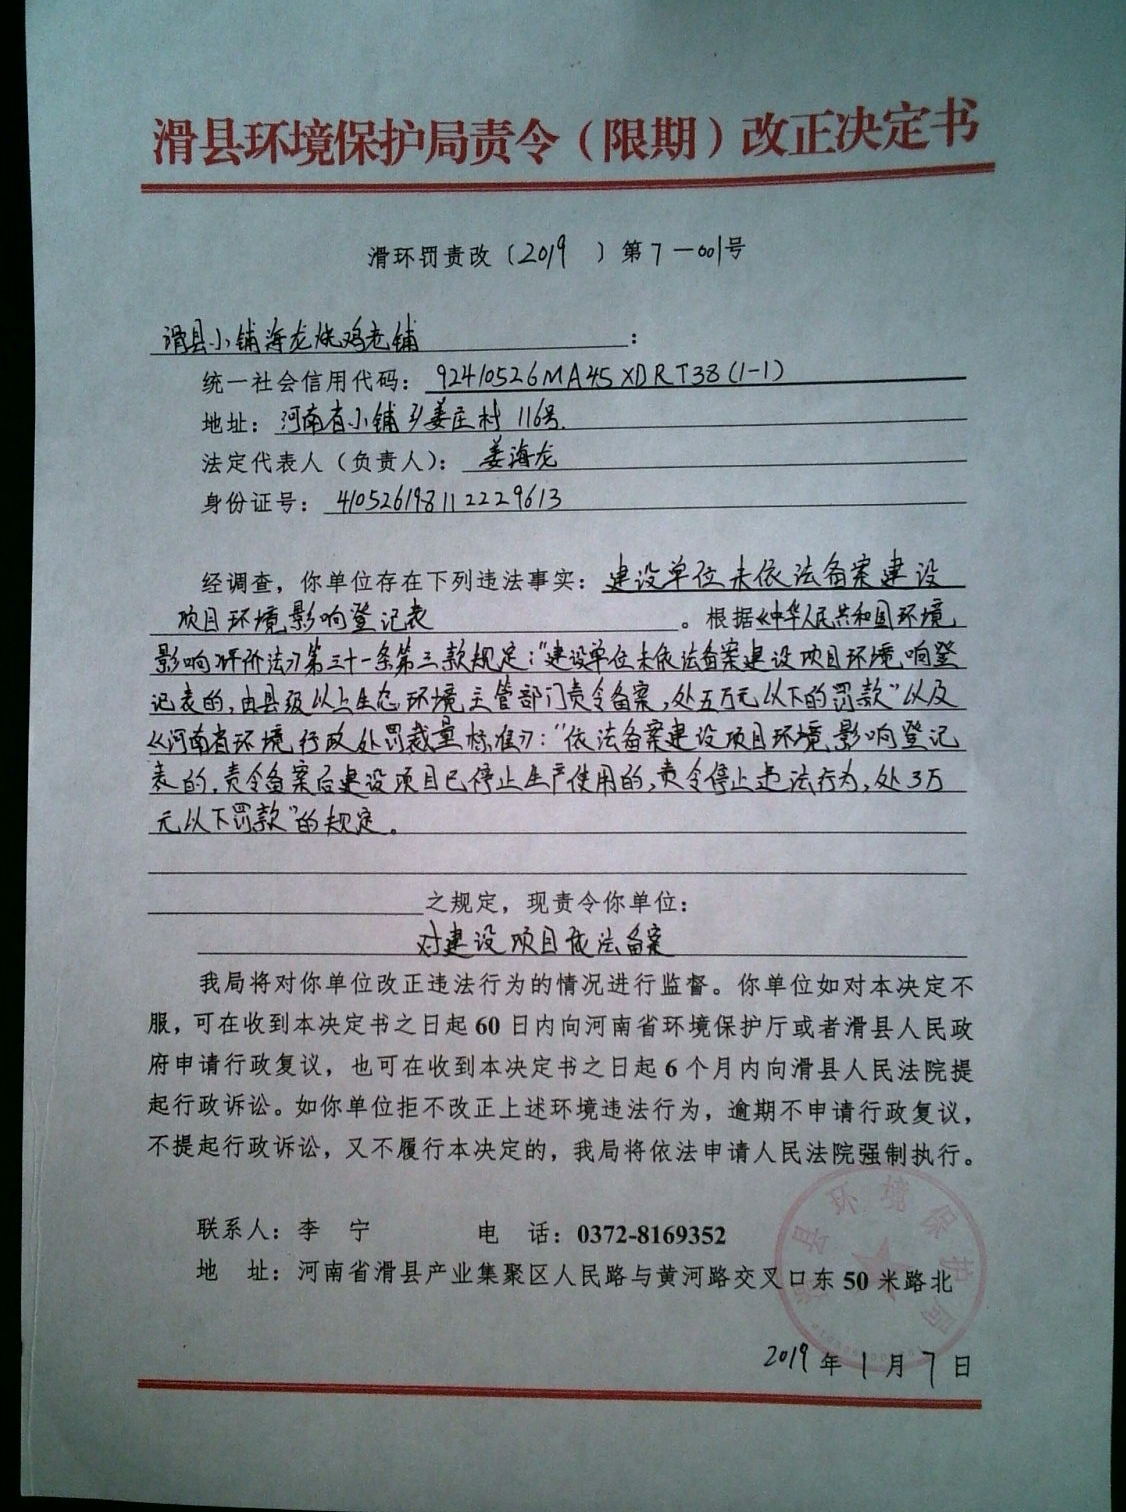 滑县环境保护局责令（限期）改正决定书
滑环罚责改〔2019 〕第7-001号
滑县小铺海龙烧鸡老铺：
统一社会信用代码：92410526MA45XDRT38(1-1)
地址：河南省小铺乡姜庄村 116号.
法定代表人（负责人）：姜海龙
身份证号：410526198112229613
经调查，你单位存在下列违法事实：建设单位未依法备案建设
项目环境影响登记表。根据《中华人民共和国环境
影响评价法》第三十一条第三款规定："建设单位未依法备案建设项目环境响登
记表的，由县级以上生态环境主管部门责令备案，处五万元以下的罚款"以及
《河南省环境行政处罚裁量标准》："依法备案建设项目环境影响登记
表的，责令备案后建设项目已停止生产使用的，责令停止违法行为，处3万
元以下罚款"的规定。
之规定，现责令你单位：
对建设项目依法备案
我局将对你单位改正违法行为的情况进行监督。你单位如对本决定不
服，可在收到本决定书之日起60日内向河南省环境保护厅或者滑县人民政
府申请行政复议，也可在收到本决定书之日起6个月内向滑县人民法院提
起行政诉讼。如你单位拒不改正上述环境违法行为，逾期不申请行政复议，
不提起行政诉讼，又不履行本决定的，我局将依法申请人民法院强制执行。
联系人：李 宁 电 话：0372-8169352
地 址：河南省滑县产业集聚区人民路与黄河路交叉口东50米路北
滑县环境保护局
2019年1月7日